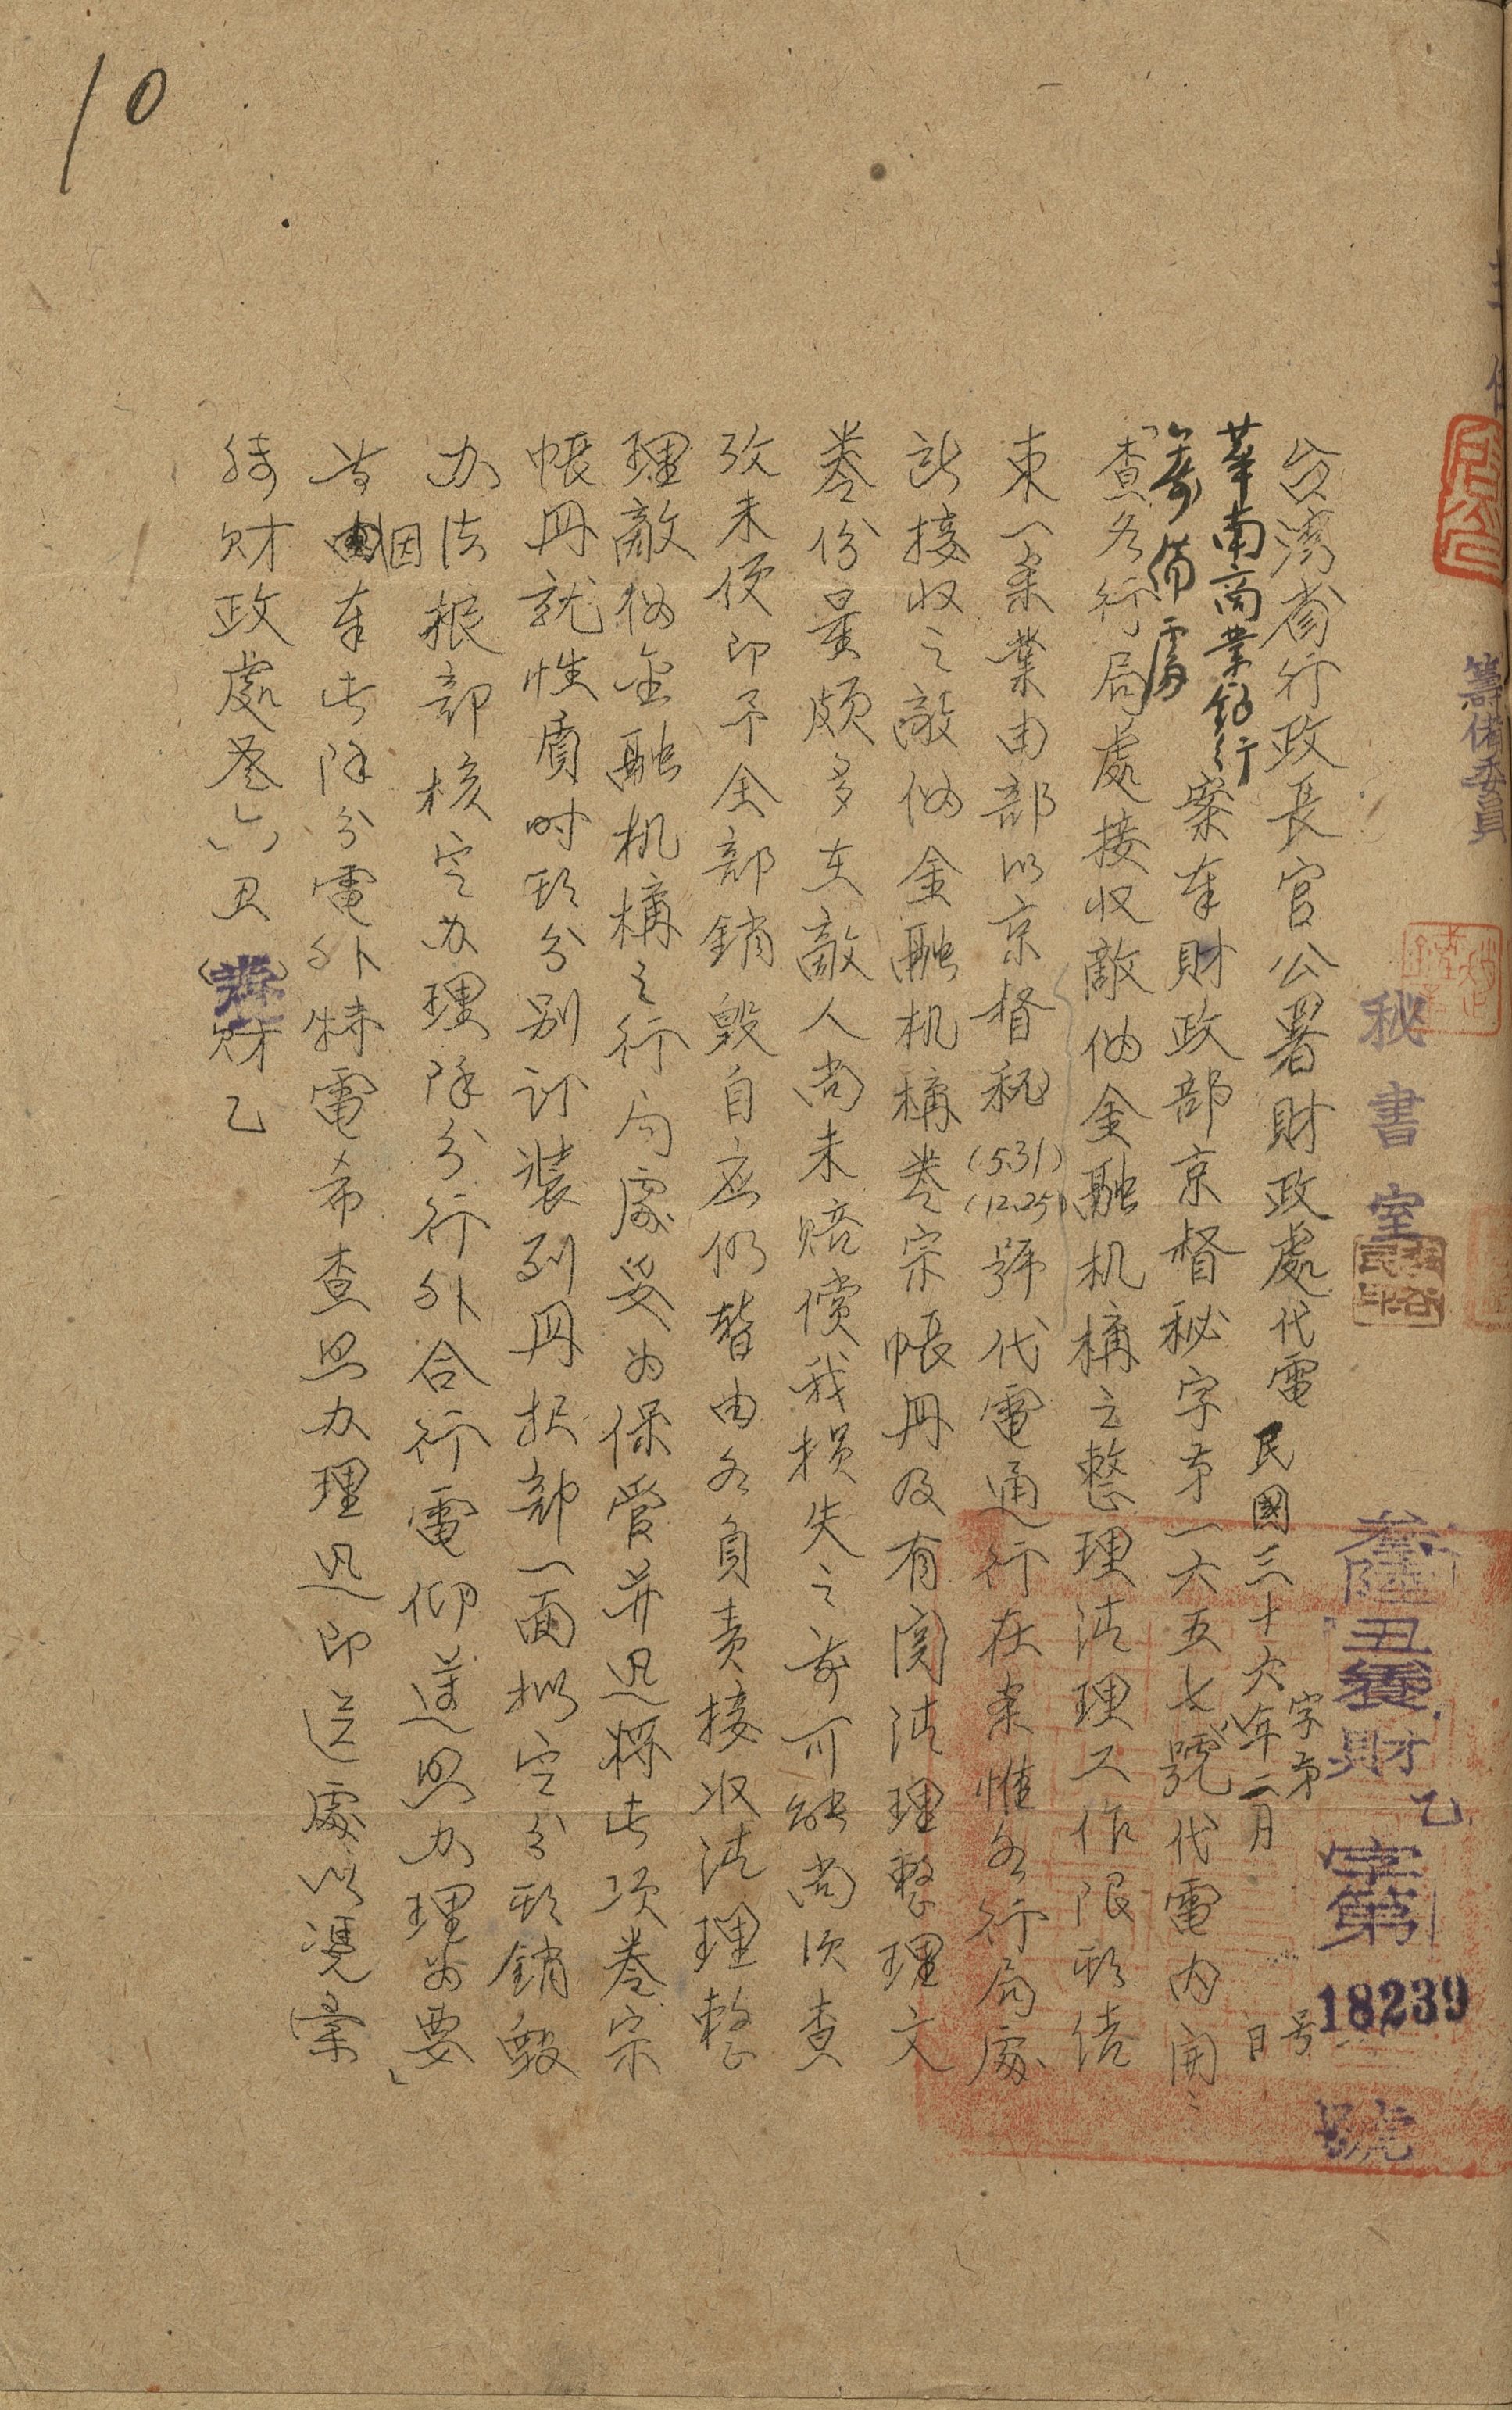 籌備委員
秘書室
叁陸丑養財乙字第18239號
台灣省行政長官公署財政處代電 民國三十六年二月 日
字第 号
華南商業銀行
籌備處
案奉財政部京督秘字第一六五七號代電內開：
「查各行局處接收敵偽金融机構之整理清理工作限期結
束一案業由部以京督秘(5.31)(12.25)號代電通行在案惟各行局處
所接收之敵偽金融机構卷宗帳冊及有関清理整理文
卷份量頗多在敵人尚未賠償我損失之前可能尚須查
攷未便即予全部銷毀自应仍暫由各負責接收清理整
理敵偽金融机構之行局處妥为保管并迅将此項卷宗
帳冊就性質时期分别訂裝列冊报部一面拟定分期銷毀
办法报部核定办理除分行外合行電仰遵照办理为要」
等因奉此除分電外特電希查照办理迅即送處以凴彙
转財政處叁六丑(養)財乙
10